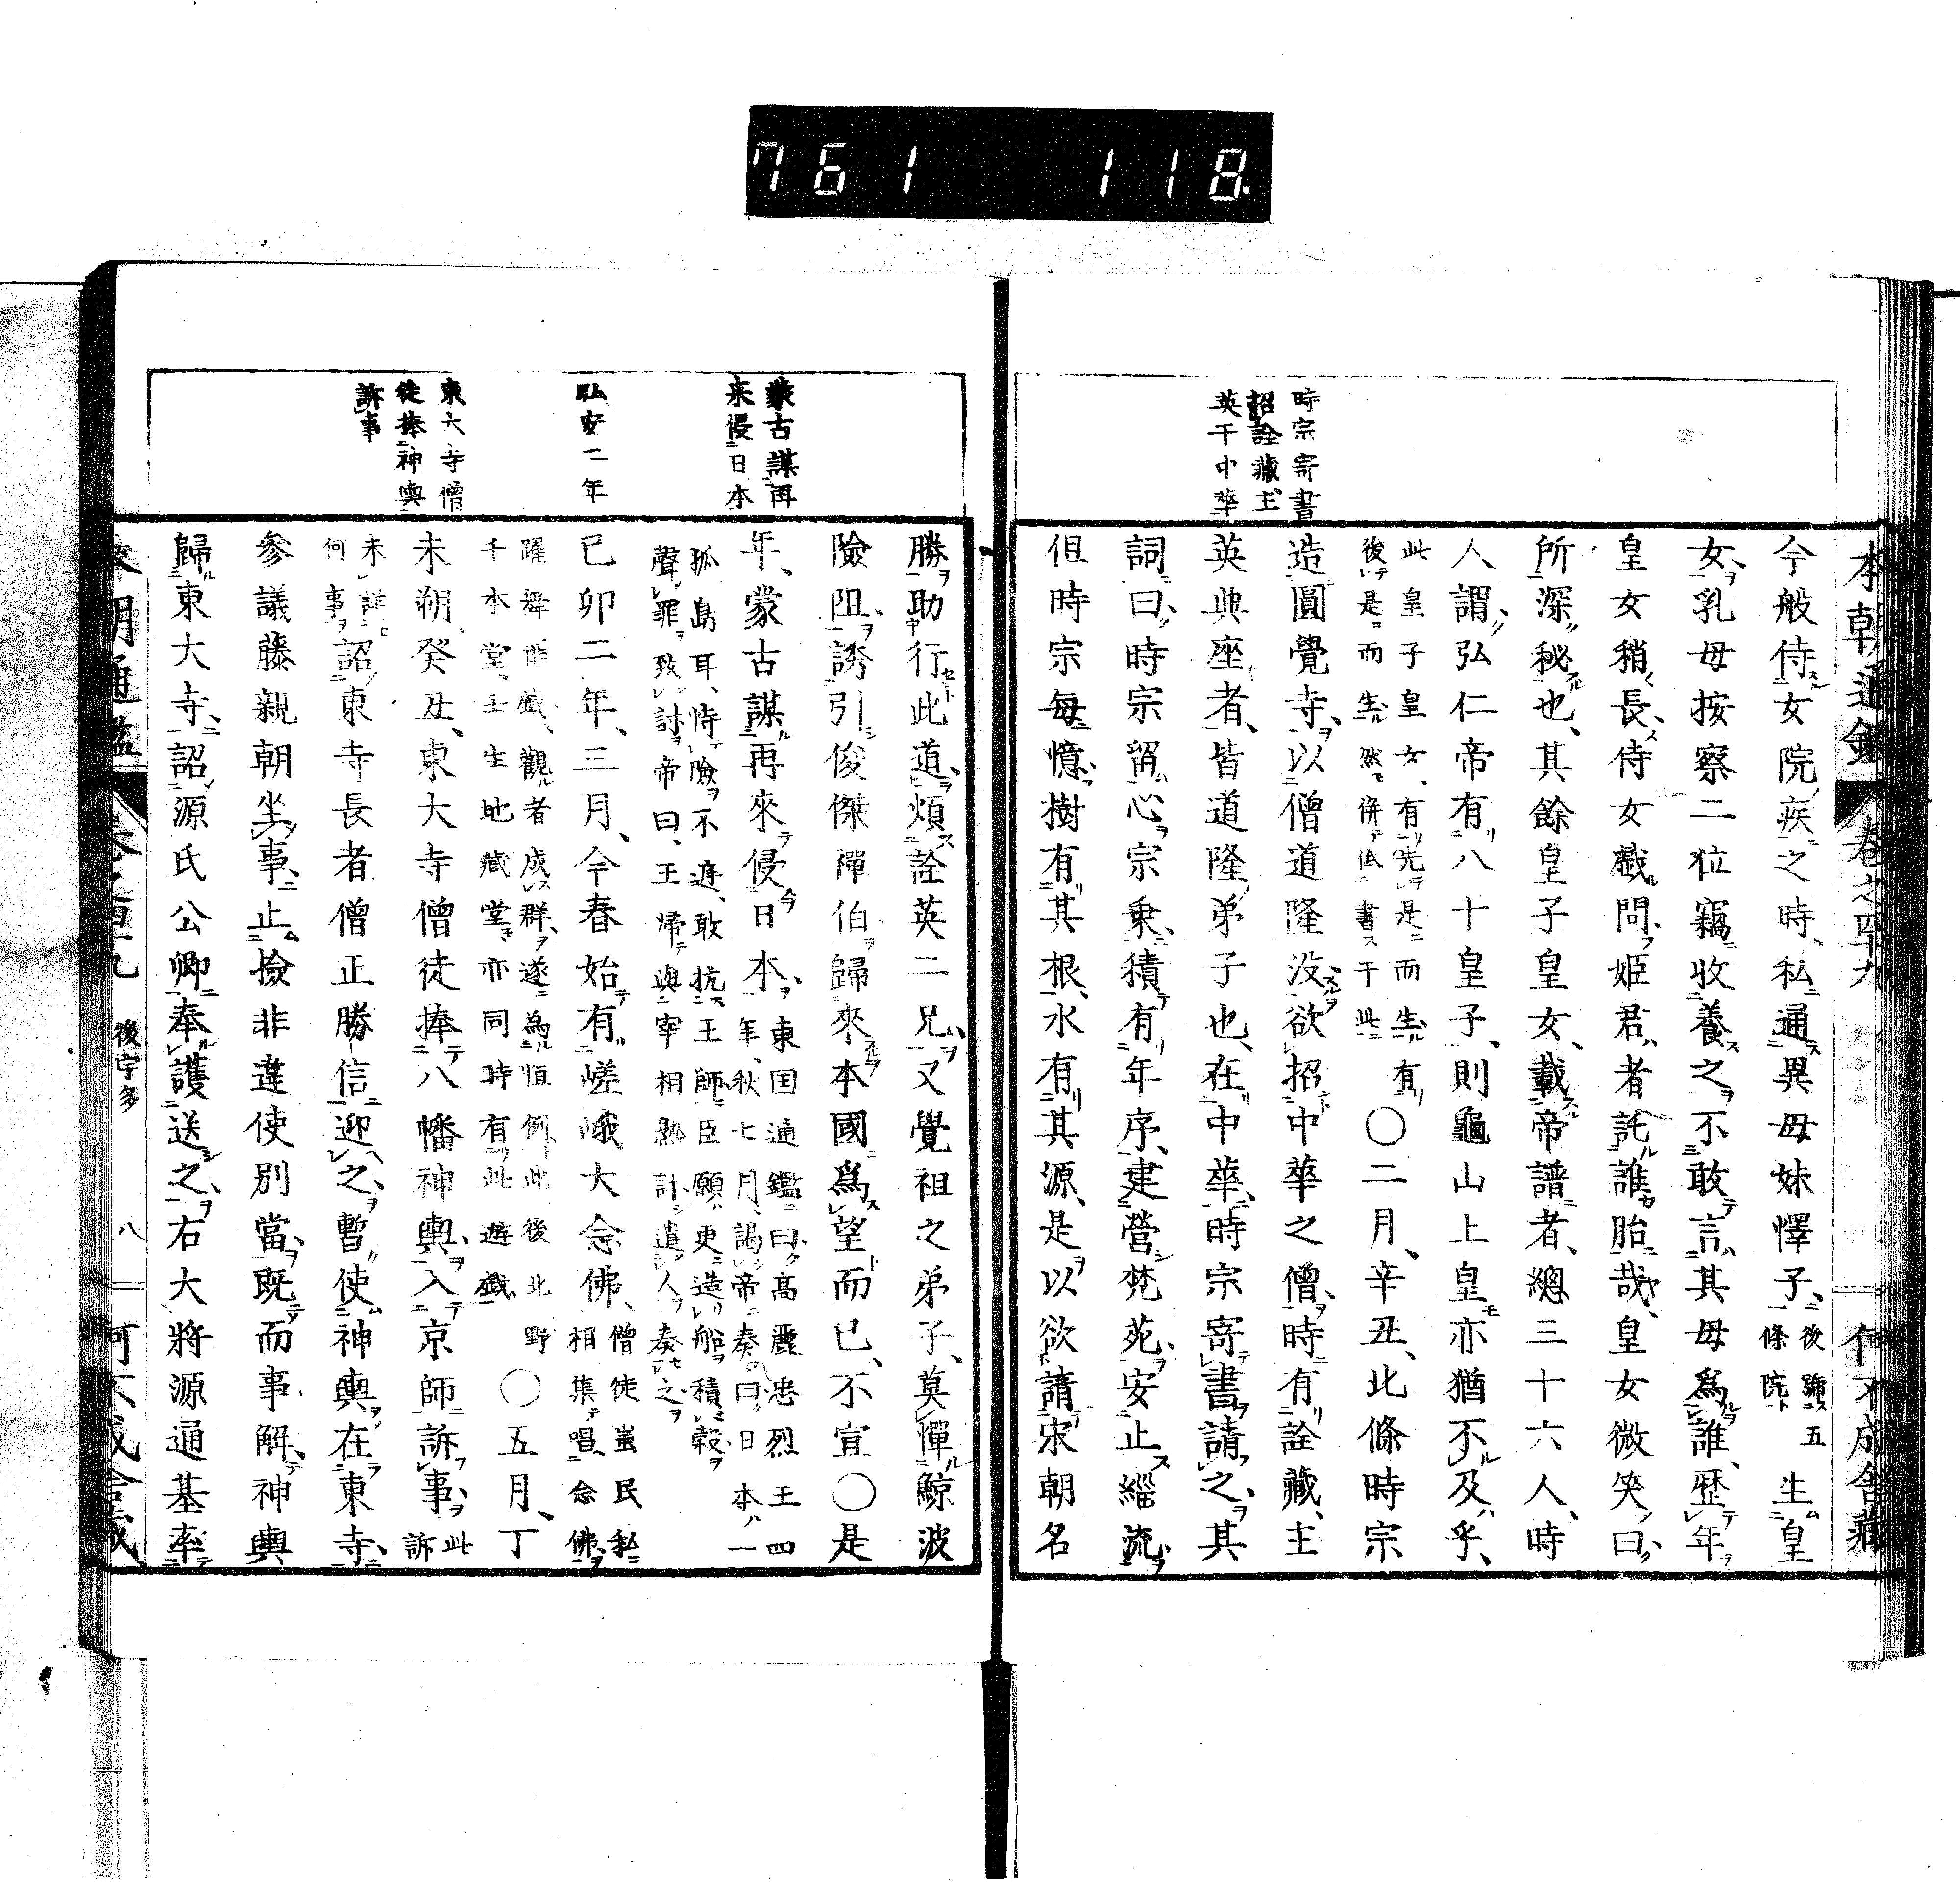 761 118
本朝通鑑 卷之四十九 何不成舍藏
時宗寄書
招詮藏主
英于中華
今般侍女院疾之時、私通異母妹懌子、後號五條院生皇
女、乳母按察二位竊收養之、不敢言其母爲誰、歷年
皇女稍長、侍女戲問、姫君者託誰胎哉、皇女微笑曰、
所深秘也、其餘皇子皇女、載帝譜者、總三十六人、時
人謂、弘仁帝有八十皇子、則龜山上皇亦猶不及乎、
此皇子皇女、有先是而生、有
後是而生、然併低書于此
〇二月、辛丑、北條時宗
造圓覺寺、以僧道隆没欲招中華之僧、時有詮藏主
英典座者、皆道隆弟子也、在中華、時宗寄書請之、其
詞曰、時宗留心宗乘、積有年序、建營梵苑、安止緇流、
但時宗每憶樹有其根、水有其源、是以欲請宋朝名
蒙古謀再
來侵日本
弘安二年
東大寺僧
徒捧神輿
訴事
勝助行此道、煩詮英二兄、又覺祖之弟子、莫憚鯨波
險阻、誘引俊傑禪伯歸來本國爲望而已、不宣〇是
年、蒙古謀再來侵日本、
東国通鑑曰、高麗忠烈王四
年、秋七月、謁帝奏曰、日本一
孤島耳、恃險不遅、敢抗王師、臣願更造船積穀、
聲罪致討、帝曰、王歸與宰相熟計、遣人奏之、
己卯二年、三月、今春始有嵯峨大念佛、
僧徒蚩民私
相集唱念佛、
躍舞俳戲、觀者成群、遂爲恒例、此後北野
千本堂、壬生地藏堂、亦同時有此遊戲、
〇五月、丁
未朔癸丑、東大寺僧徒捧八幡神輿、入京師訴事、
此訴
未詳何事
詔東寺長者僧正勝信迎之、暫使神輿在東寺、
參議藤親朝坐事、止撿非違使別當、既而事解、神輿
歸東大寺、詔源氏公卿奉護送之、右大將源通基率
本朝通鑑 卷之四十九 後宇多 八 何不成舍藏